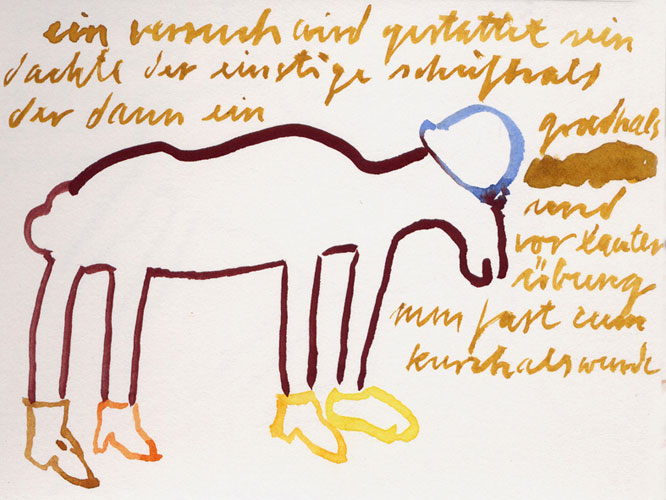 ein versuch wird gestattet sein
dachte der einstige schiefhals
der dann ein
gradhals
und
vor lauter
übung
nun fast zum
kurzhals wurde